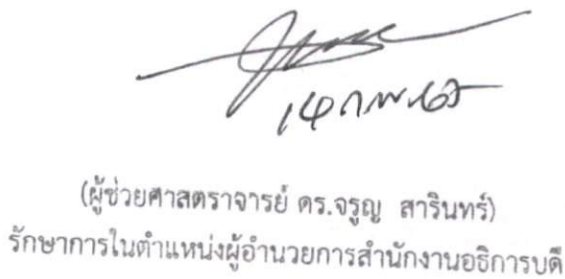 (ผู้ช่วยศาสตราจารย์ ดร.จรูญ สารินทร์)
รักษาการในตำแหน่งผู้อำนวยการสำนักงานอธิการบดี